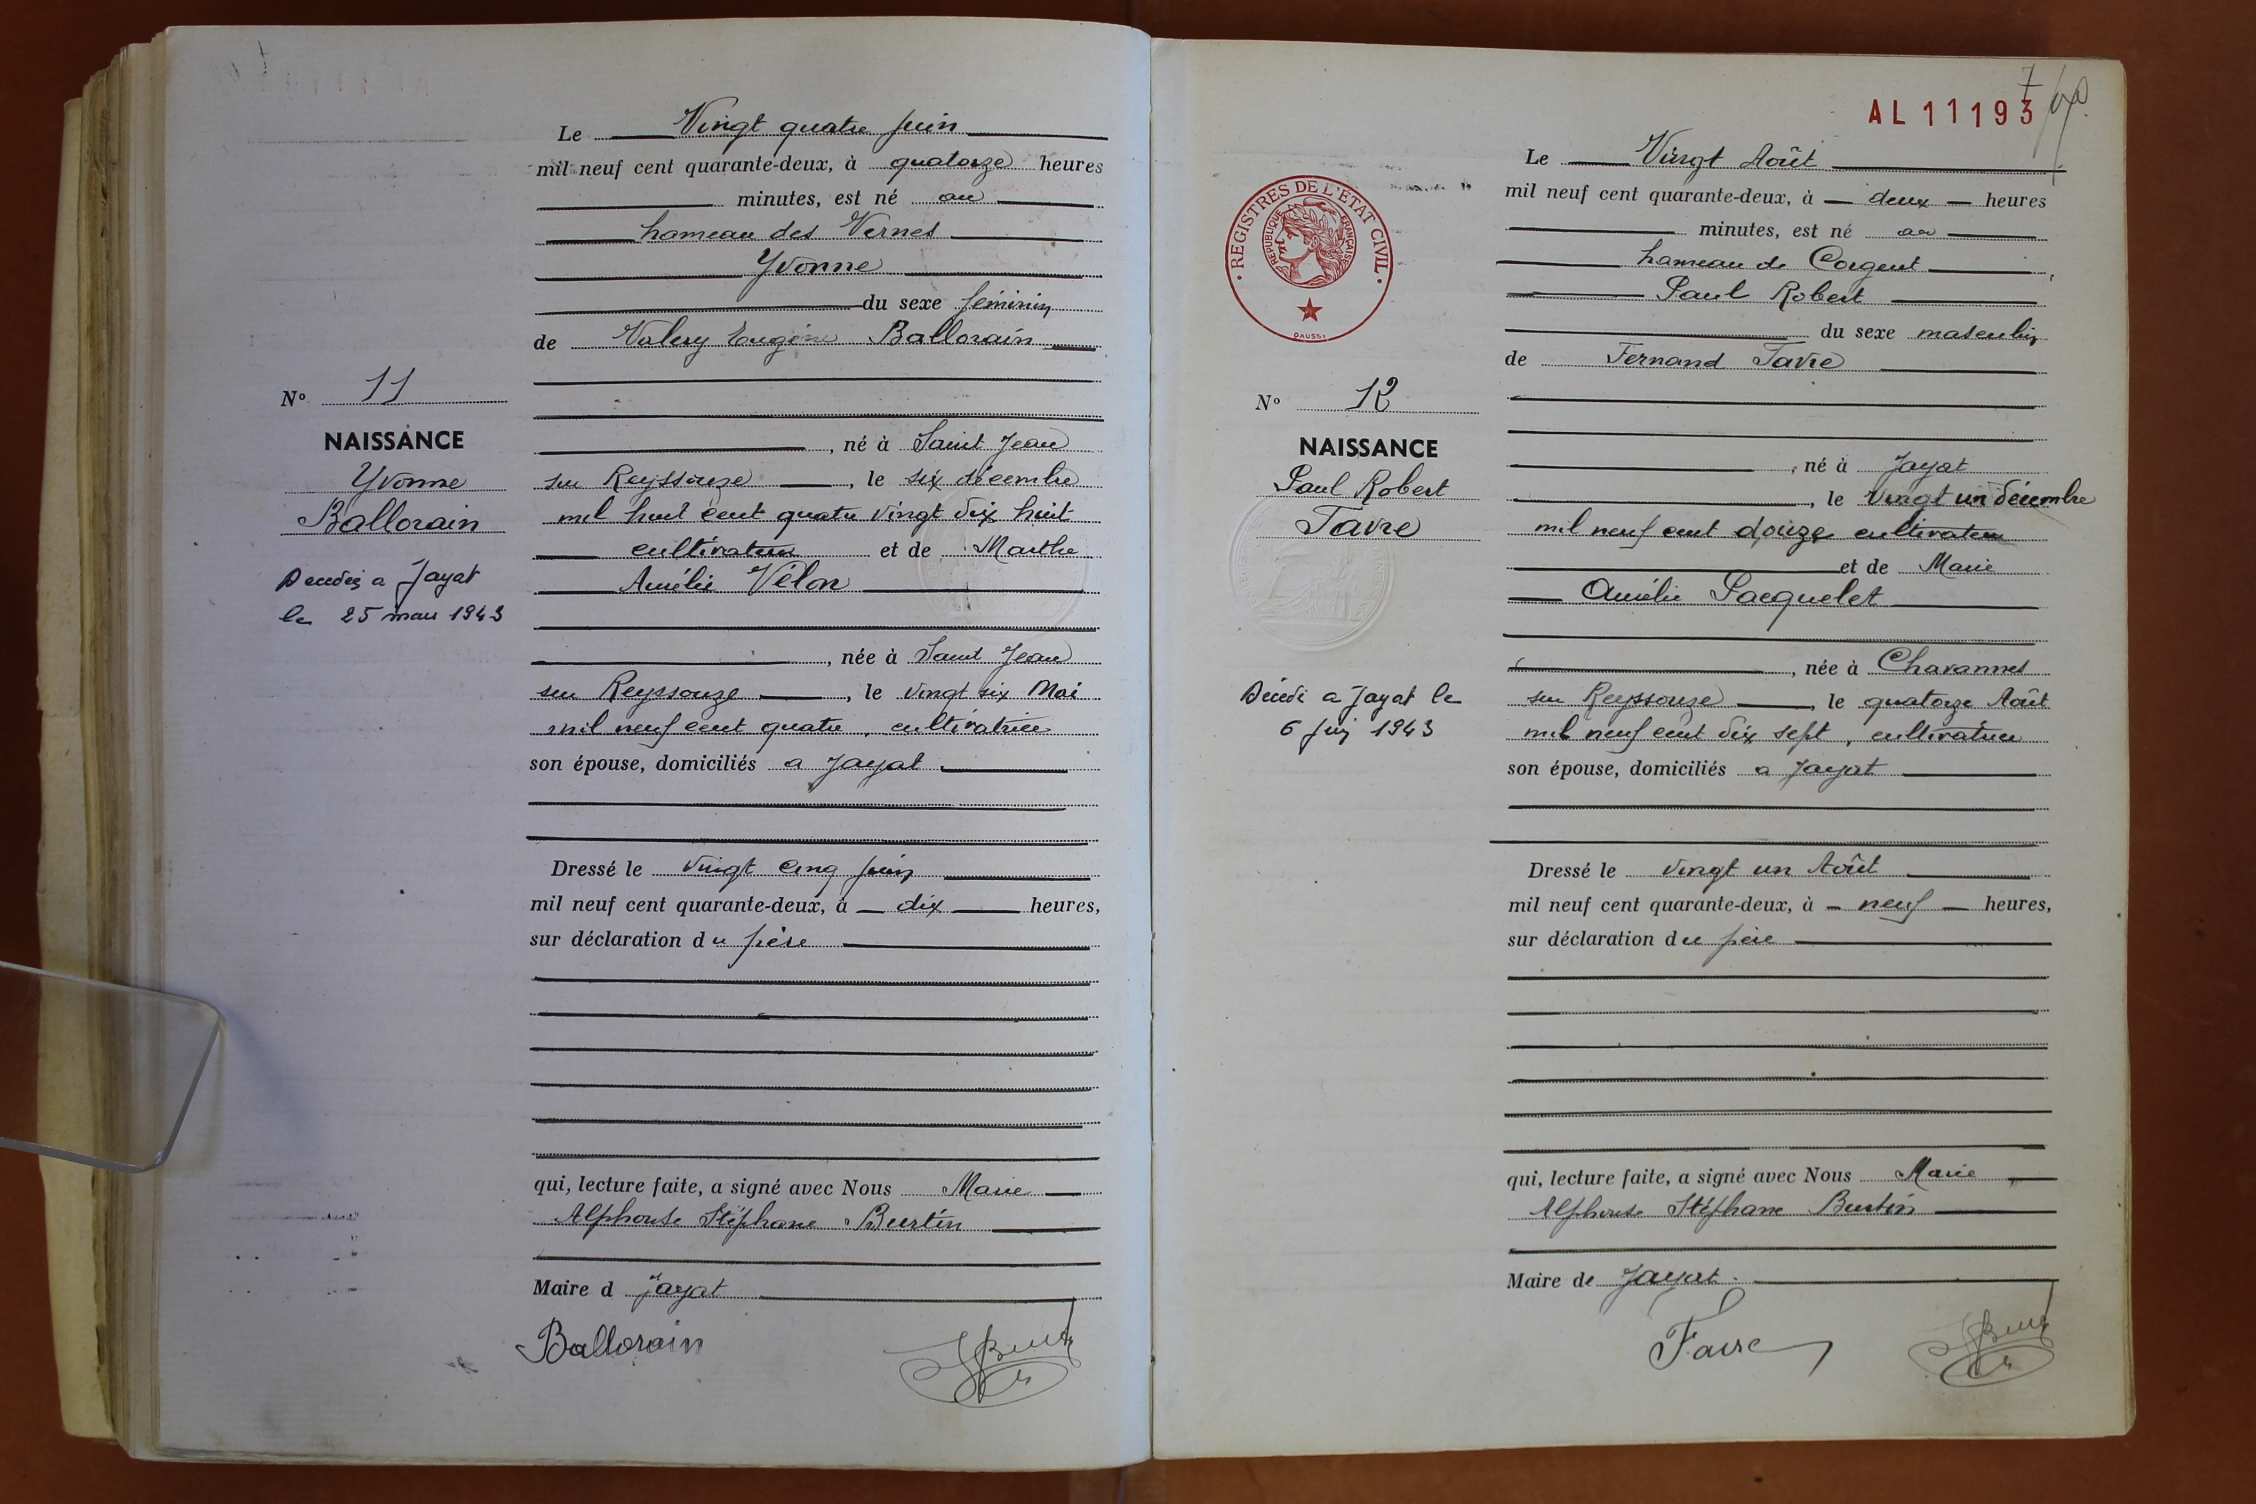 Le Vingt quatre juin
mil neuf cent quarante-deux, à quatorze heures
minutes, est né au
hameau des Vernes
Yvonne
du sexe féminin
de Valery Eugène Ballorain
N° 11
NAISSANCE
Yvonne
Ballorain
Décédée a Jayat
le 25 mars 1943
, né à Saint Jean
sur Reyssouze , le six décembre
mil huit cent quatre vingt dix huit
cultivateur et de Marthe
Amélie Vélon
, née à Saint Jean
sur Reyssouze , le vingt six Mai
mil neuf cent quatre , cultivatrice
son épouse, domiciliés a Jayat
Dressé le vingt cinq juin
mil neuf cent quarante-deux, à dix heures,
sur déclaration du père
qui, lecture faite, a signé avec Nous Marie
Alphonse Stéphane Burtin
Maire d Jayat
Ballorain
AL 11193
7
Le Vingt Août
mil neuf cent quarante-deux, à deux heures
minutes, est né au
hameau de Corgent
Paul Robert
du sexe masculin
de Fernand Favre
REGISTRES DE L'ETAT CIVIL
REPUBLIQUE FRANÇAISE
DAUSSY
N° 12
NAISSANCE
Paul Robert
Favre
Décédé a Jayat le
6 juin 1943
, né à Jayat
, le vingt un décembre
mil neuf cent douze cultivateur
et de Marie
Amélie Pacquelet
, née à Chavannes
sur Reyssouze , le quatorze Août
mil neuf cent dix sept , cultivatrice
son épouse, domiciliés a Jayat
Dressé le vingt un Août
mil neuf cent quarante-deux, à neuf heures,
sur déclaration du père
qui, lecture faite, a signé avec Nous Marie
Alphonse Stéphane Burtin
Maire de Jayat
Favre